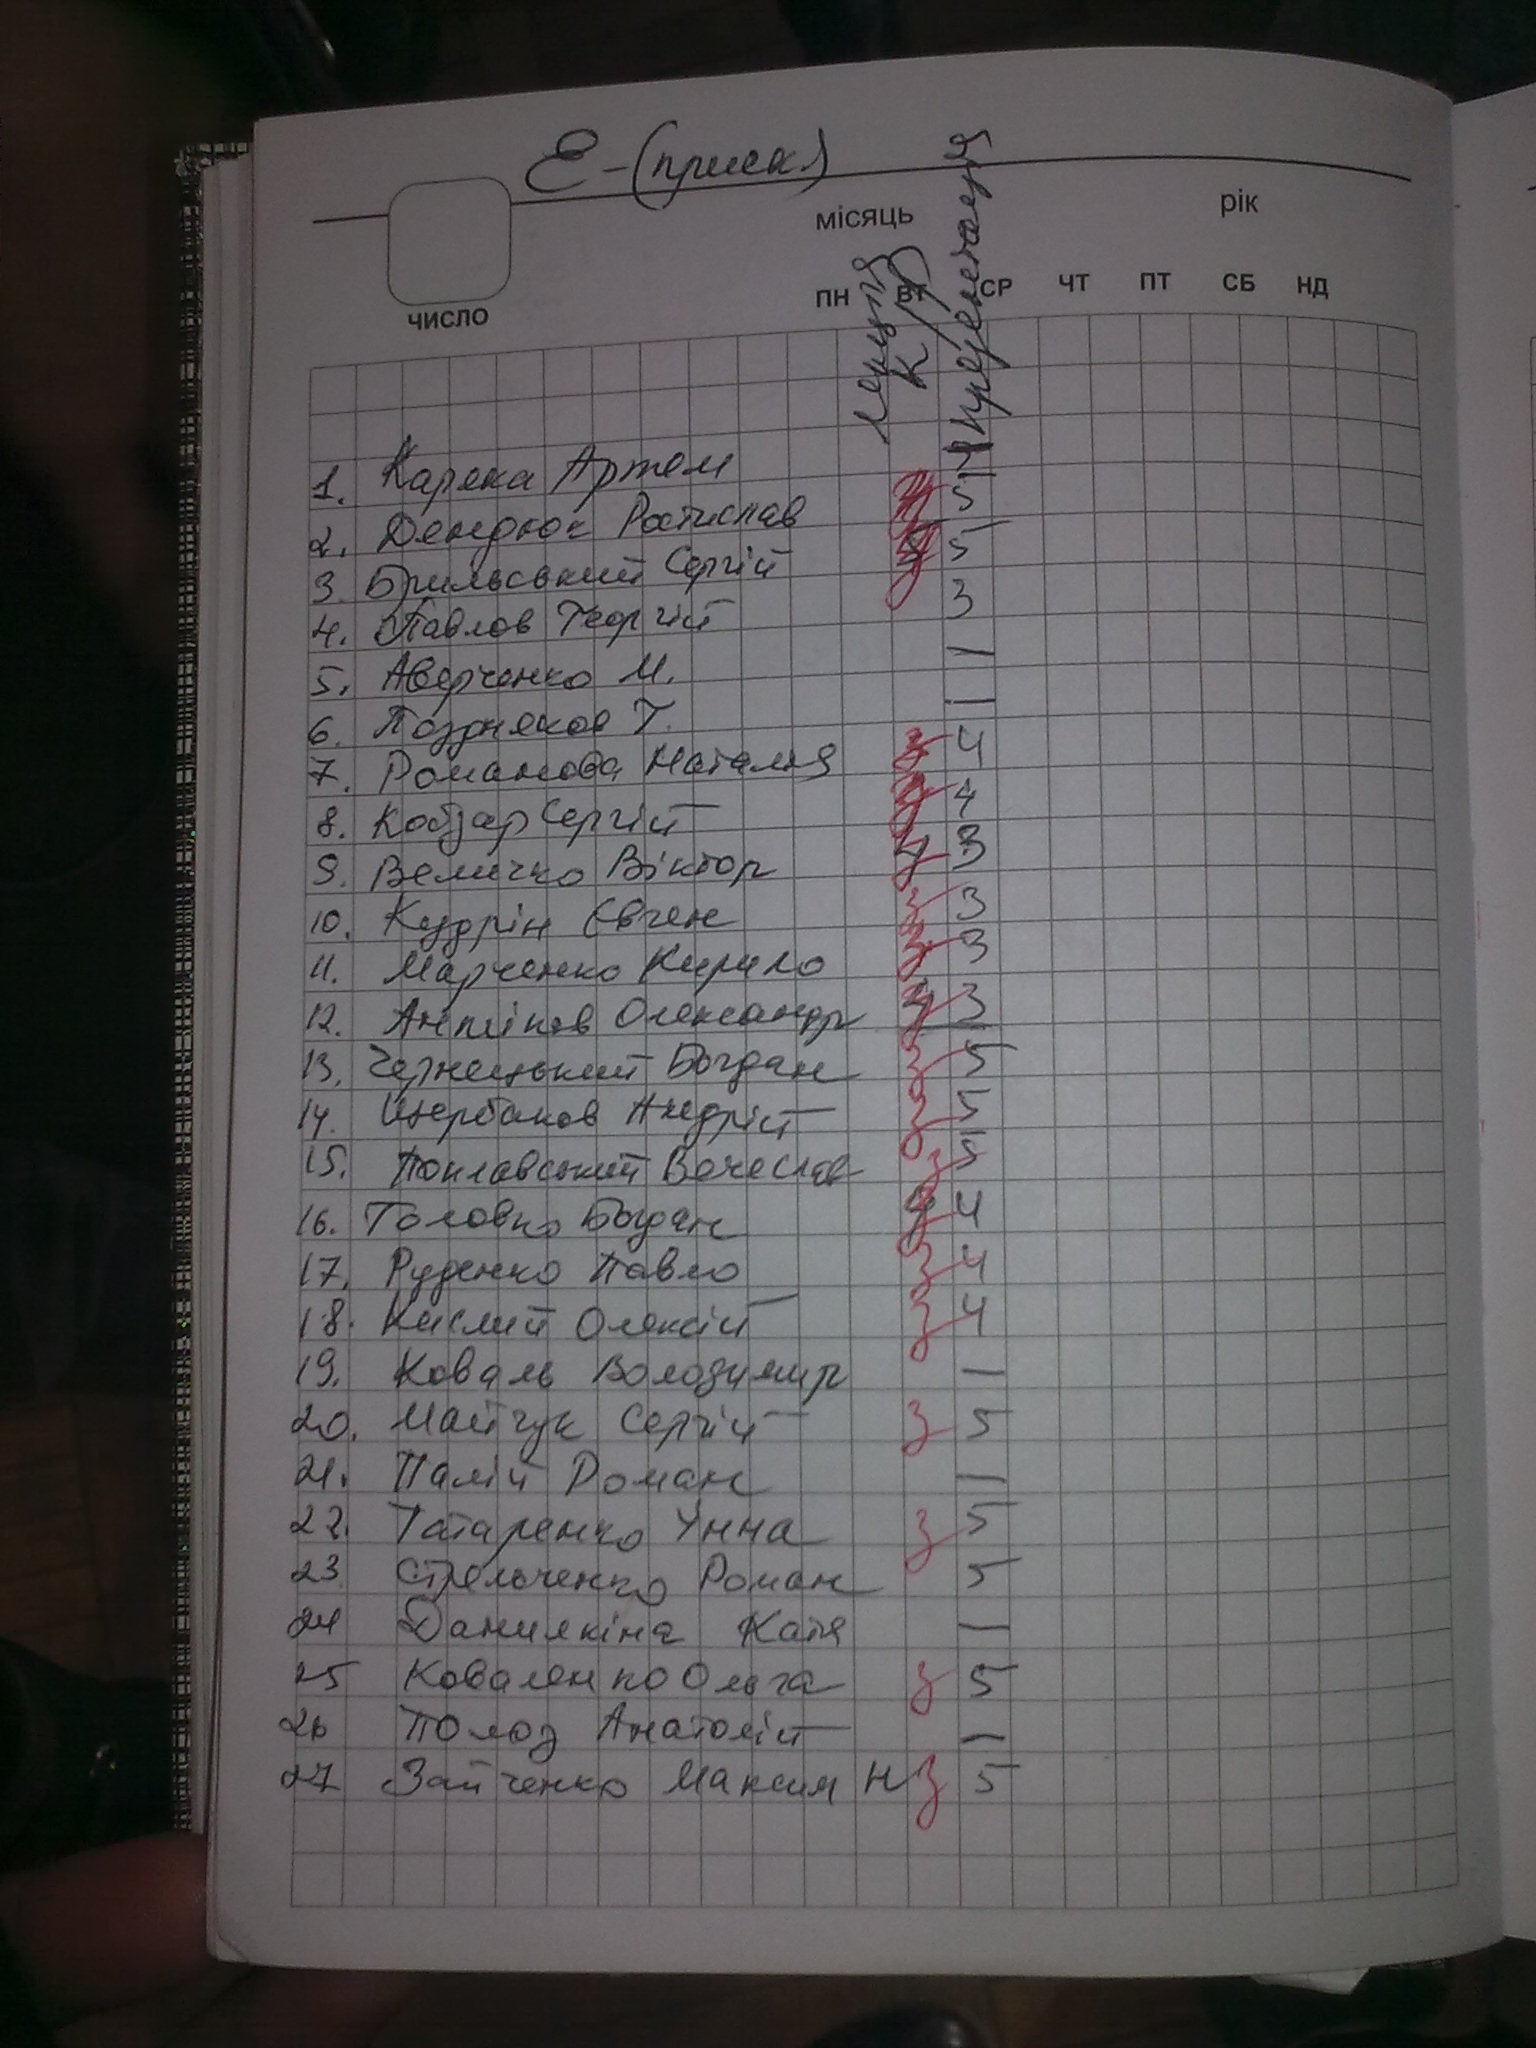 Е-(приск)
місяць рік
ПН ВТ СР ЧТ ПТ СБ НД
ЧИСЛО
К/Р
Презентація
1. Каряка Артем
2. Дендюк Ростислав 5
3. Брильовський Сергій 5
4. Павлов Георгій 3
5. Аверченко М. —
6. Поздняков Т. —
7. Романова Наталія 3 4
8. Кобзар Сергій 4
9. Величко Віктор 4 3
10. Кудрін Євген 3 3
11. Марченко Кирило 3 3
12. Антіпов Олександр 3
13. Чернецький Богдан 3 5
14. Щербаков Андрій 3 5
15. Поплавський Вячеслав 3 5
16. Головко Богдан 4 4
17. Руденко Павло 3 4
18. Кислий Олексій 3 4
19. Коваль Володимир —
20. Майчук Сергій 3 5
21. Палій Роман —
22. Татаренко Інна 3 5
23 Стрельченко Роман 5
24 Данилкіна Катя —
25 Коваленко Ольга 3 5
26 Полоз Анатолій —
27 Зайченко Максим Н 3 5